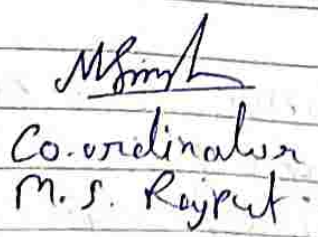 MSingh
Co.ordinator
M. S. Rajput.